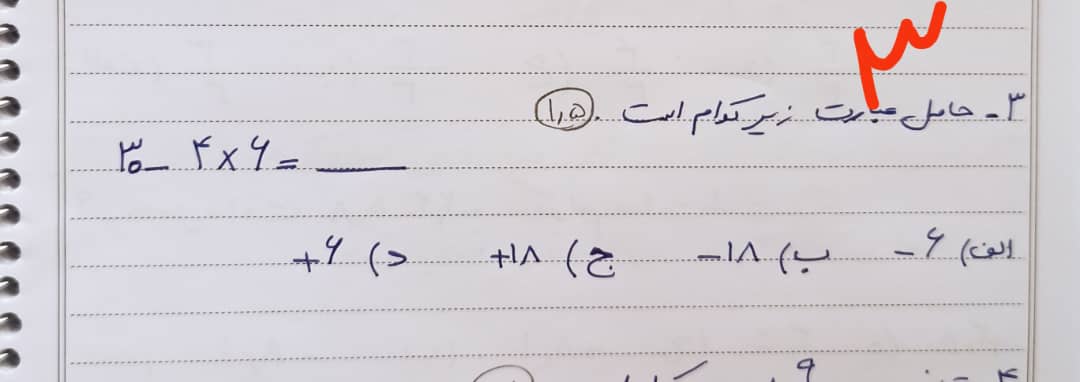 ۳
۳- حاصل عبارت زیر کدام است. (۱,۵)
۳۰ - ۴ × ۶ = ____
الف) -۶ ب) -۱۸ ج) +۱۸ د) +۶